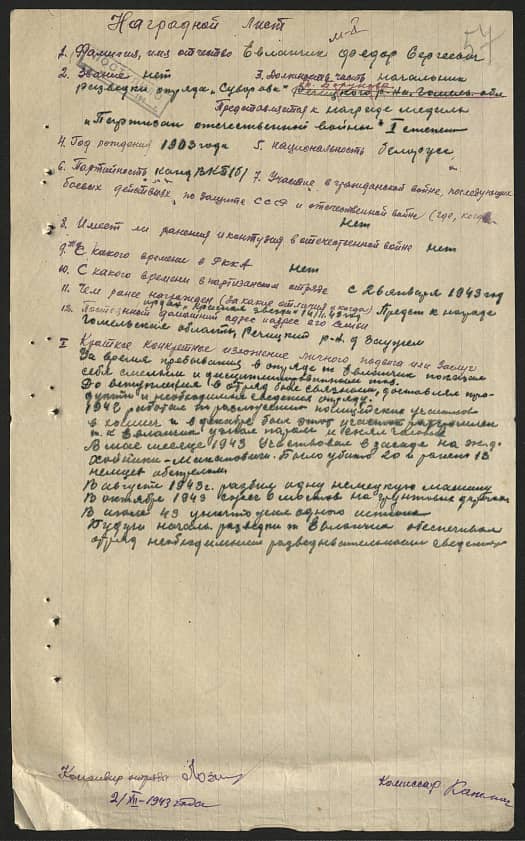 Наградной Лист
57
1. Фамилия, имя отчество Евланчик Федор Сергеевич
2. Звание нет 3. Должность часть начальник
разведки отряда „Суворова“
Представляется к награде медаль
„Партизан отечественной войны“ I степени
4. Год рождения 1903 года 5. национальность белорусс
6. Партийность канд ВКП(б) 7. Участие, в гражданской войне, последующих
боевых действиях, по защите СССР и отечественной войне (где, когда
нет
8. Имеет ли ранения и контузия в отечественной войне нет
9. С какого времени в РККА нет
10. С какого времени в партизанском отряде с 26 января 1943 год
11. Чем ранее награжден (за какие отличия и когда) Предст к награде
12. Постоянный домашний адрес и адрес его семьи
Гомельские область, Речицкий р-н. д
I Краткое конкретное изложение личного подвига или заслуг
За время пребывания в отряде т Евланчик показал
себя смелым и дисциплинированным
До вступления в отряд был связным, доставлял про-
дукты и необходимые сведения отряду.
1942 работал по разложению полицейских участков
в и в декабре был этот участок разгромлен
т. к Евланчик узнал пароль и снял часовых
В мае месяце 1943 Участвовал в засаде на ж.д.
Хойники - Было убито 20 и ранено 13
немцев
В августе 1943г. разбил одну немецкую машину
В октябре 1943 сжег 6 мостов на грунтовых дорогах
В июле 43 уничтожил одного
Будучи начальн разведки т Евланчик обеспечивал
отряд необходимыми разведывательными сведения
Командир отряда
2/XII-1943 года
Комиссар